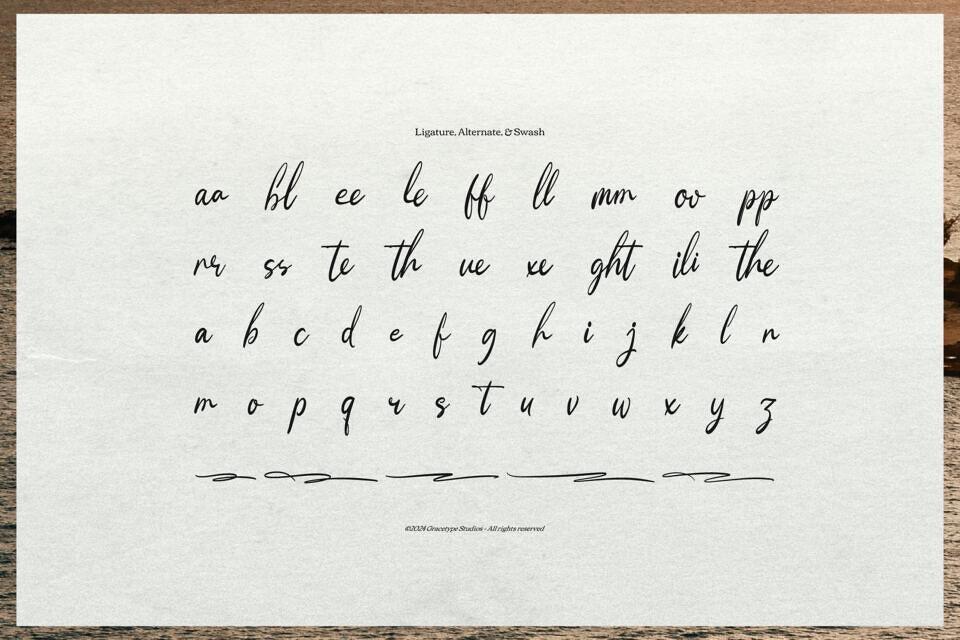 Ligature, Alternate, & Swash
aa bl ee le ff ll mm ov pp
rr ss te th ue xe ght ili the
a b c d e f g h i j k l n
m o p q r s t u v w x y z
©2024 Gracetype Studios - All rights reserved